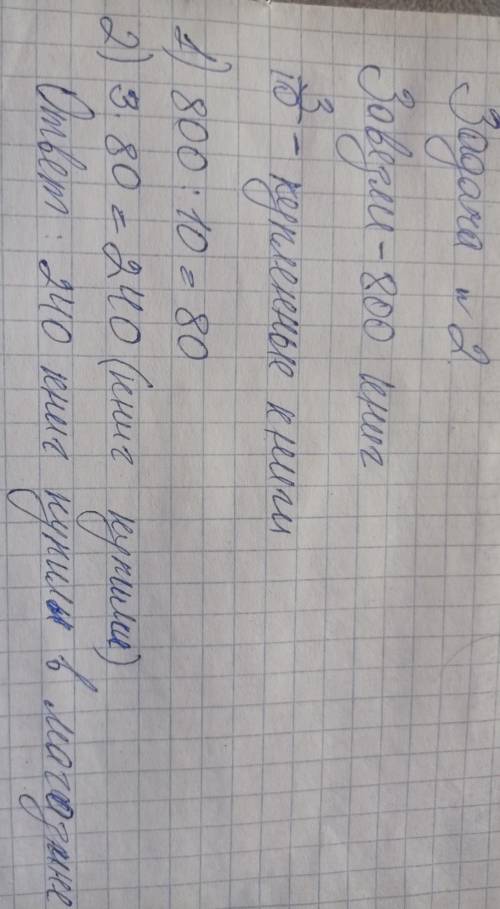 Задача н 2
Завезли - 800 книг
3/10 - купленные книги
1) 800 : 10 = 80
2) 3 · 80 = 240 (книг купили)
Ответ : 240 книг купили в магазинее